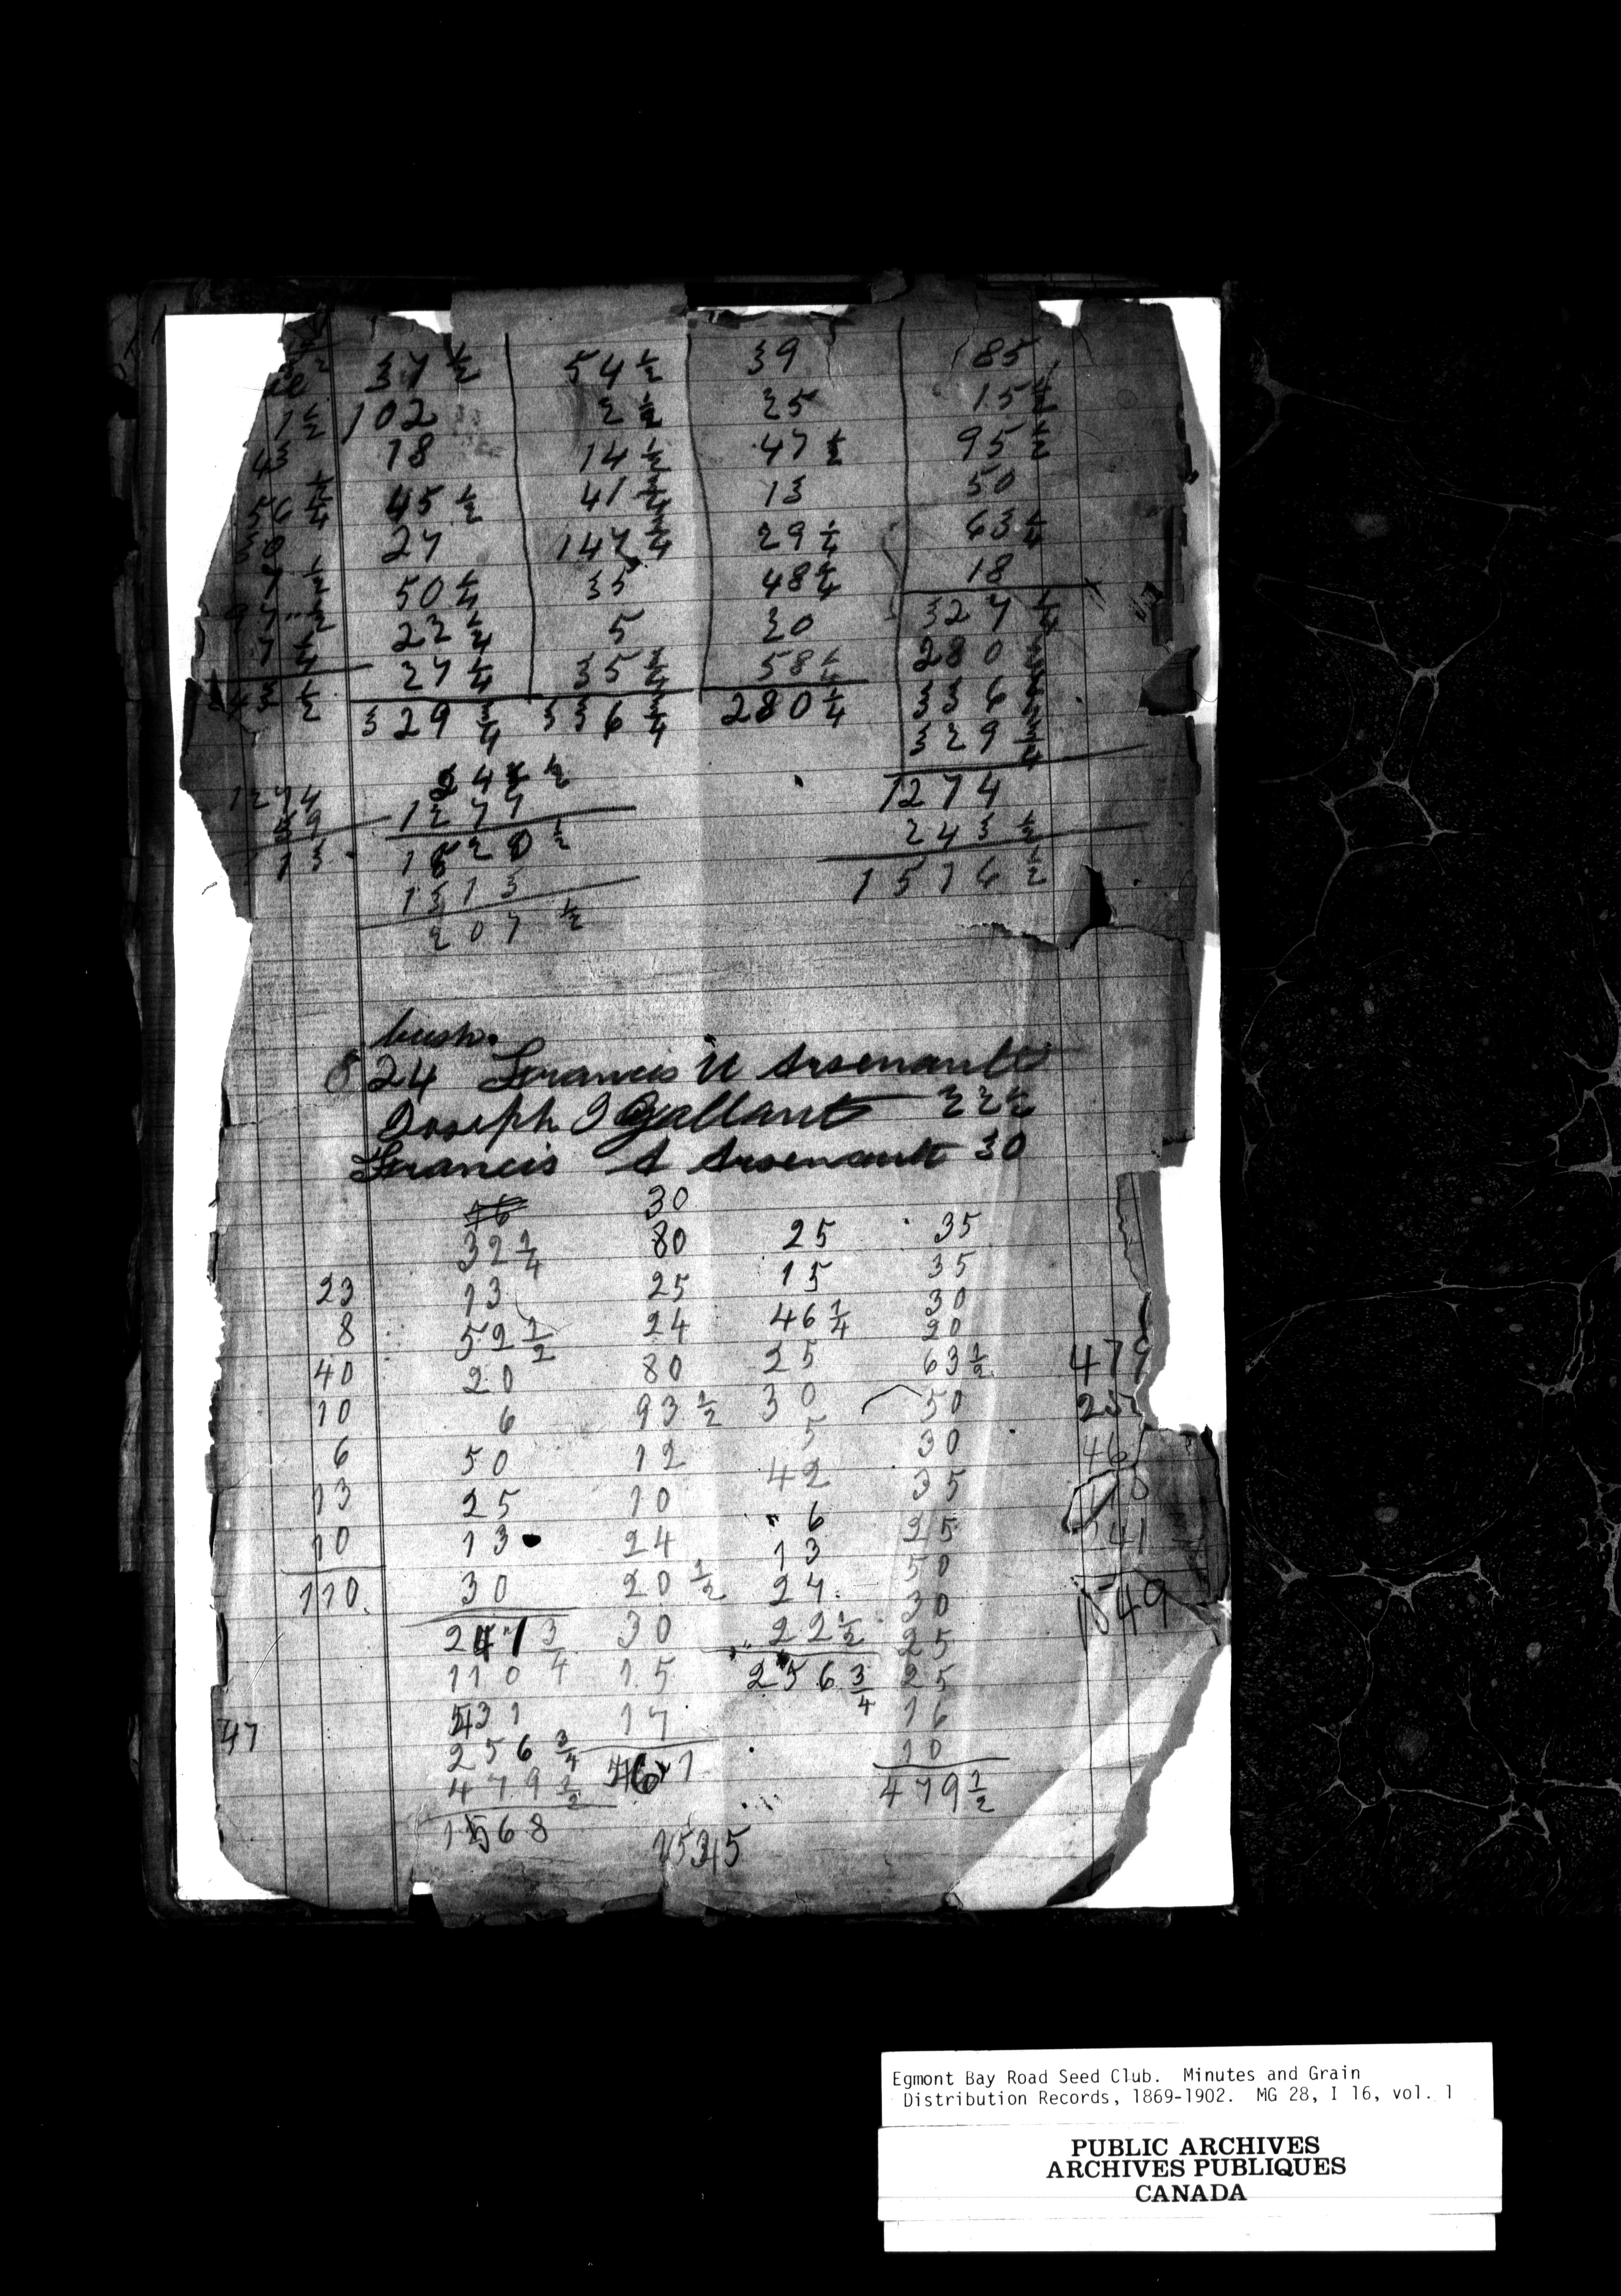 37 1/2 54 1/2 39 85
1 1/2 102 2 1/2 25 15 1/4
43 18 14 1/2 47 1/2 95 1/2
56 1/4 45 1/2 41 3/4 13 50
30 27 147 3/4 29 1/4 63 1/4
7 1/2 50 1/4 35 48 1/4 18
5 30 327 1/4
7 1/4 27 1/4 35 1/4 58 1/4 280 1/4
43 1/2 329 3/4 336 3/4 280 1/4 336 3/4
329 3/4
1274 1274
1277 243 1/2
13 1 5 1 6 1/2
1313
207 1/2
bush.
824 Francis U Arsenault
Joseph J Gallant 22 1/2
Francis A Arsenault 30
30
32 1/4 80 25 35
23 13 25 15 35
8 52 1/2 24 46 1/4 30
20
40 20 80 25 63 1/2 479
10 6 93 1/2 30 50 25
6 50 12 5 30 46
13 25 10 42 35
10 13 24 6 25 141
110 30 20 1/2 13 50
24 30 1549
241 3/4 30 22 1/2 25
110 15 256 3/4 25
47 431 17 16
256 3/4 461 10
479 1/2 479 1/2
1568 1545
Egmont Bay Road Seed Club. Minutes and Grain
Distribution Records, 1869-1902. MG 28, I 16, vol. 1
PUBLIC ARCHIVES
ARCHIVES PUBLIQUES
CANADA